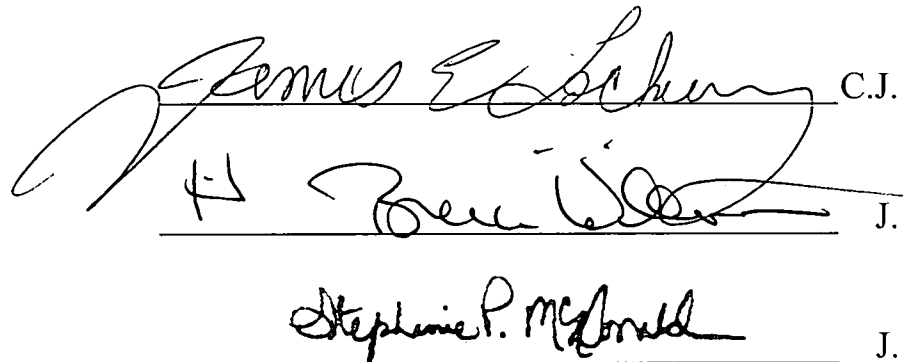 James E. Lockemy C.J.
H Bruce Williams J.
Stephanie P. McDonald J.